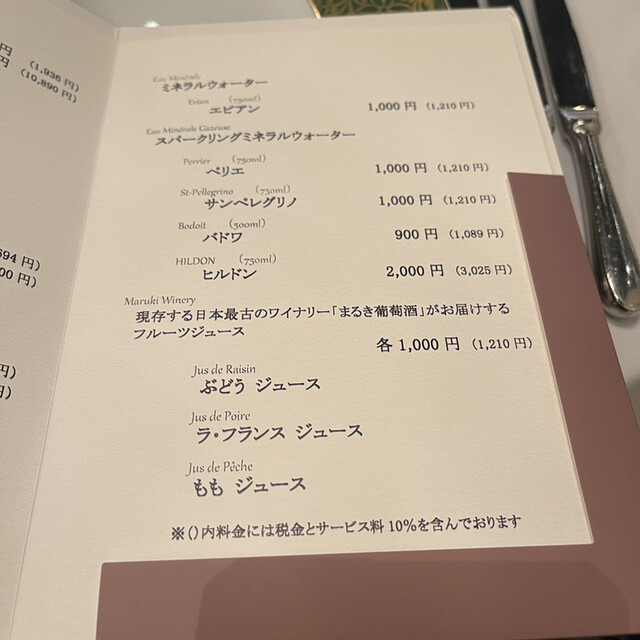 円 (1,936 円)
円 (10,890 円)
694 円)
00 円)
円)
円)
Eau Minérale
ミネラルウォーター
Evian (750ml)
エビアン 1,000 円 (1,210 円)
Eau Minérale Gazeuse
スパークリングミネラルウォーター
Perrier (750ml)
ペリエ 1,000 円 (1,210 円)
St-Pellegrino (750ml)
サンペレグリノ 1,000 円 (1,210 円)
Bodoit (500ml)
バドワ 900 円 (1,089 円)
HILDON (750ml)
ヒルドン 2,000 円 (3,025 円)
Maruki Winery
現存する日本最古のワイナリー「まるき葡萄酒」がお届けする
フルーツジュース
各 1,000 円 (1,210 円)
Jus de Raisin
ぶどう ジュース
Jus de Poire
ラ・フランス ジュース
Jus de Pêche
もも ジュース
※()内料金には税金とサービス料 10%を含んでおります